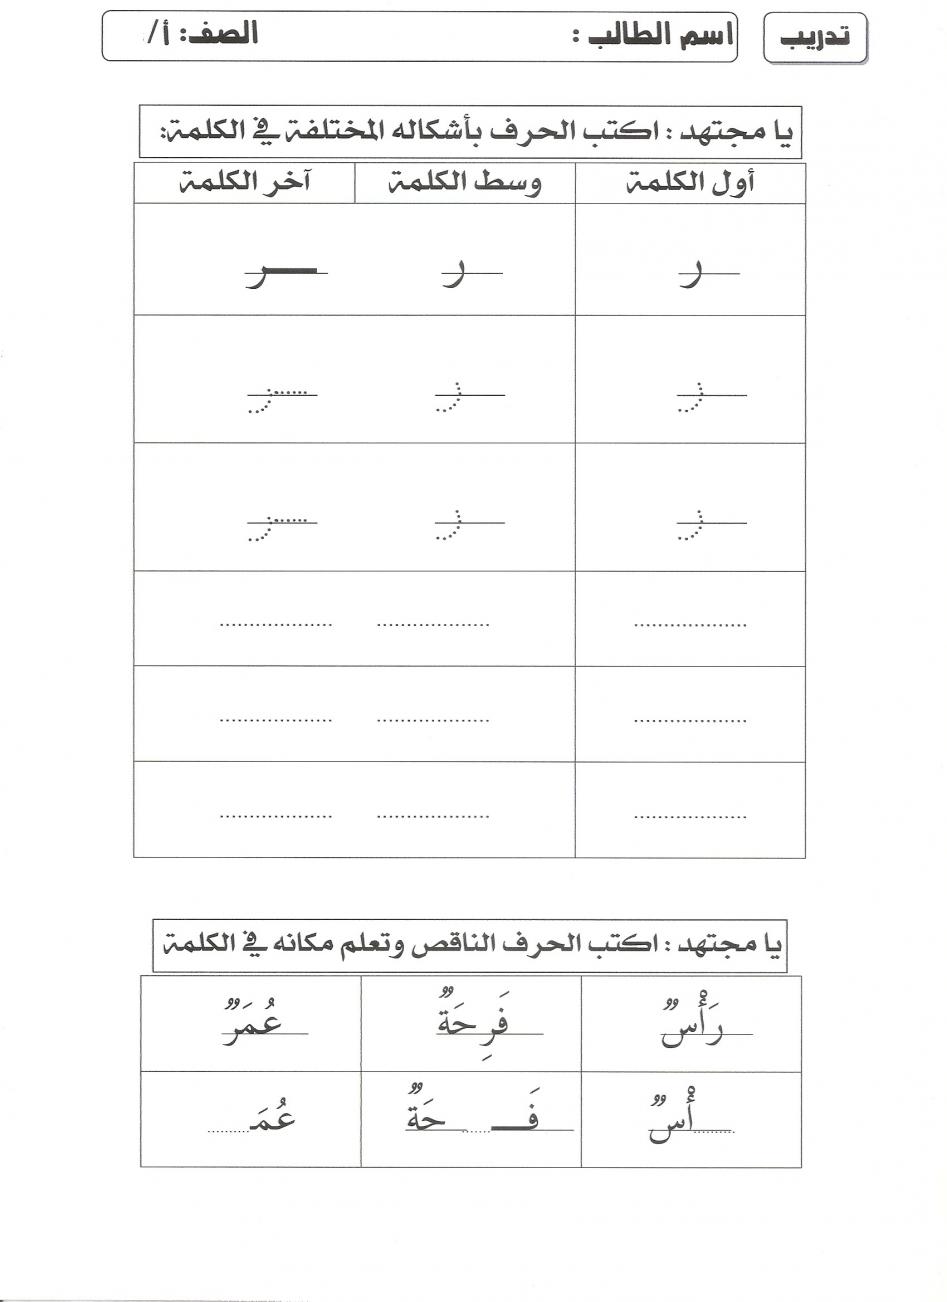 تدريب اسم الطالب : الصف: أ/
يا مجتهد : اكتب الحرف بأشكاله المختلفة في الكلمة:
أول الكلمة وسط الكلمة آخر الكلمة
ر ر ـر
ر ر ـر
ر ر ـر
.................. .................. ..................
.................. .................. ..................
.................. .................. ..................
يا مجتهد : اكتب الحرف الناقص وتعلم مكانه في الكلمة
رَأْسٌ فَرِحَةٌ عُمَرٌ
.......أْسٌ فَـ......حَةٌ عُمَـ.......